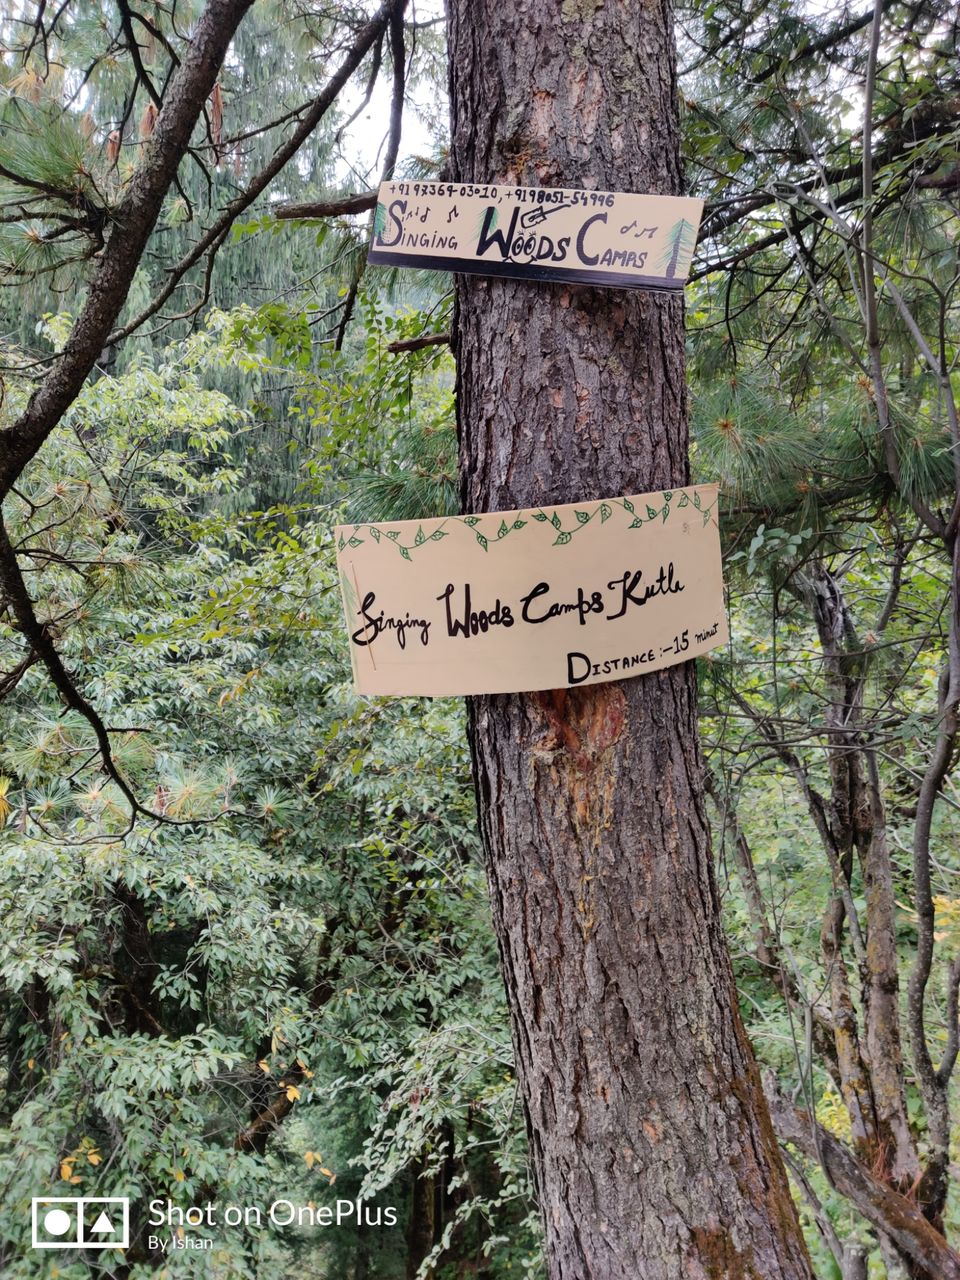 +91 98369-03010, +91 98051-54996
SINGING WOODS CAMPS
Singing Woods Camps Kutla
DISTANCE:-15 minut
Shot on OnePlus
By Ishan